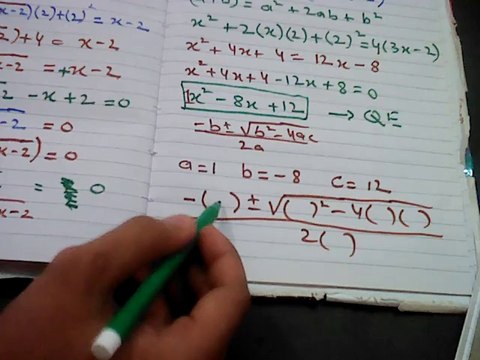 x-2)(2)+(2)² = x-2
2)+4 = x-2
= +x-2
2 - x + 2 = 0
= 0
x-2) = 0
= 0
x-2
= a² + 2ab + b²
x² + 2(x)(2) + (2)² = 4(3x-2)
x² + 4x + 4 = 12x - 8
x² + 4x + 4 - 12x + 8 = 0
x² - 8x + 12 → QE
-b ± √b² - 4ac
2a
a = 1 b = -8 c = 12
-( ) ± √( )² - 4( )( )
2( )